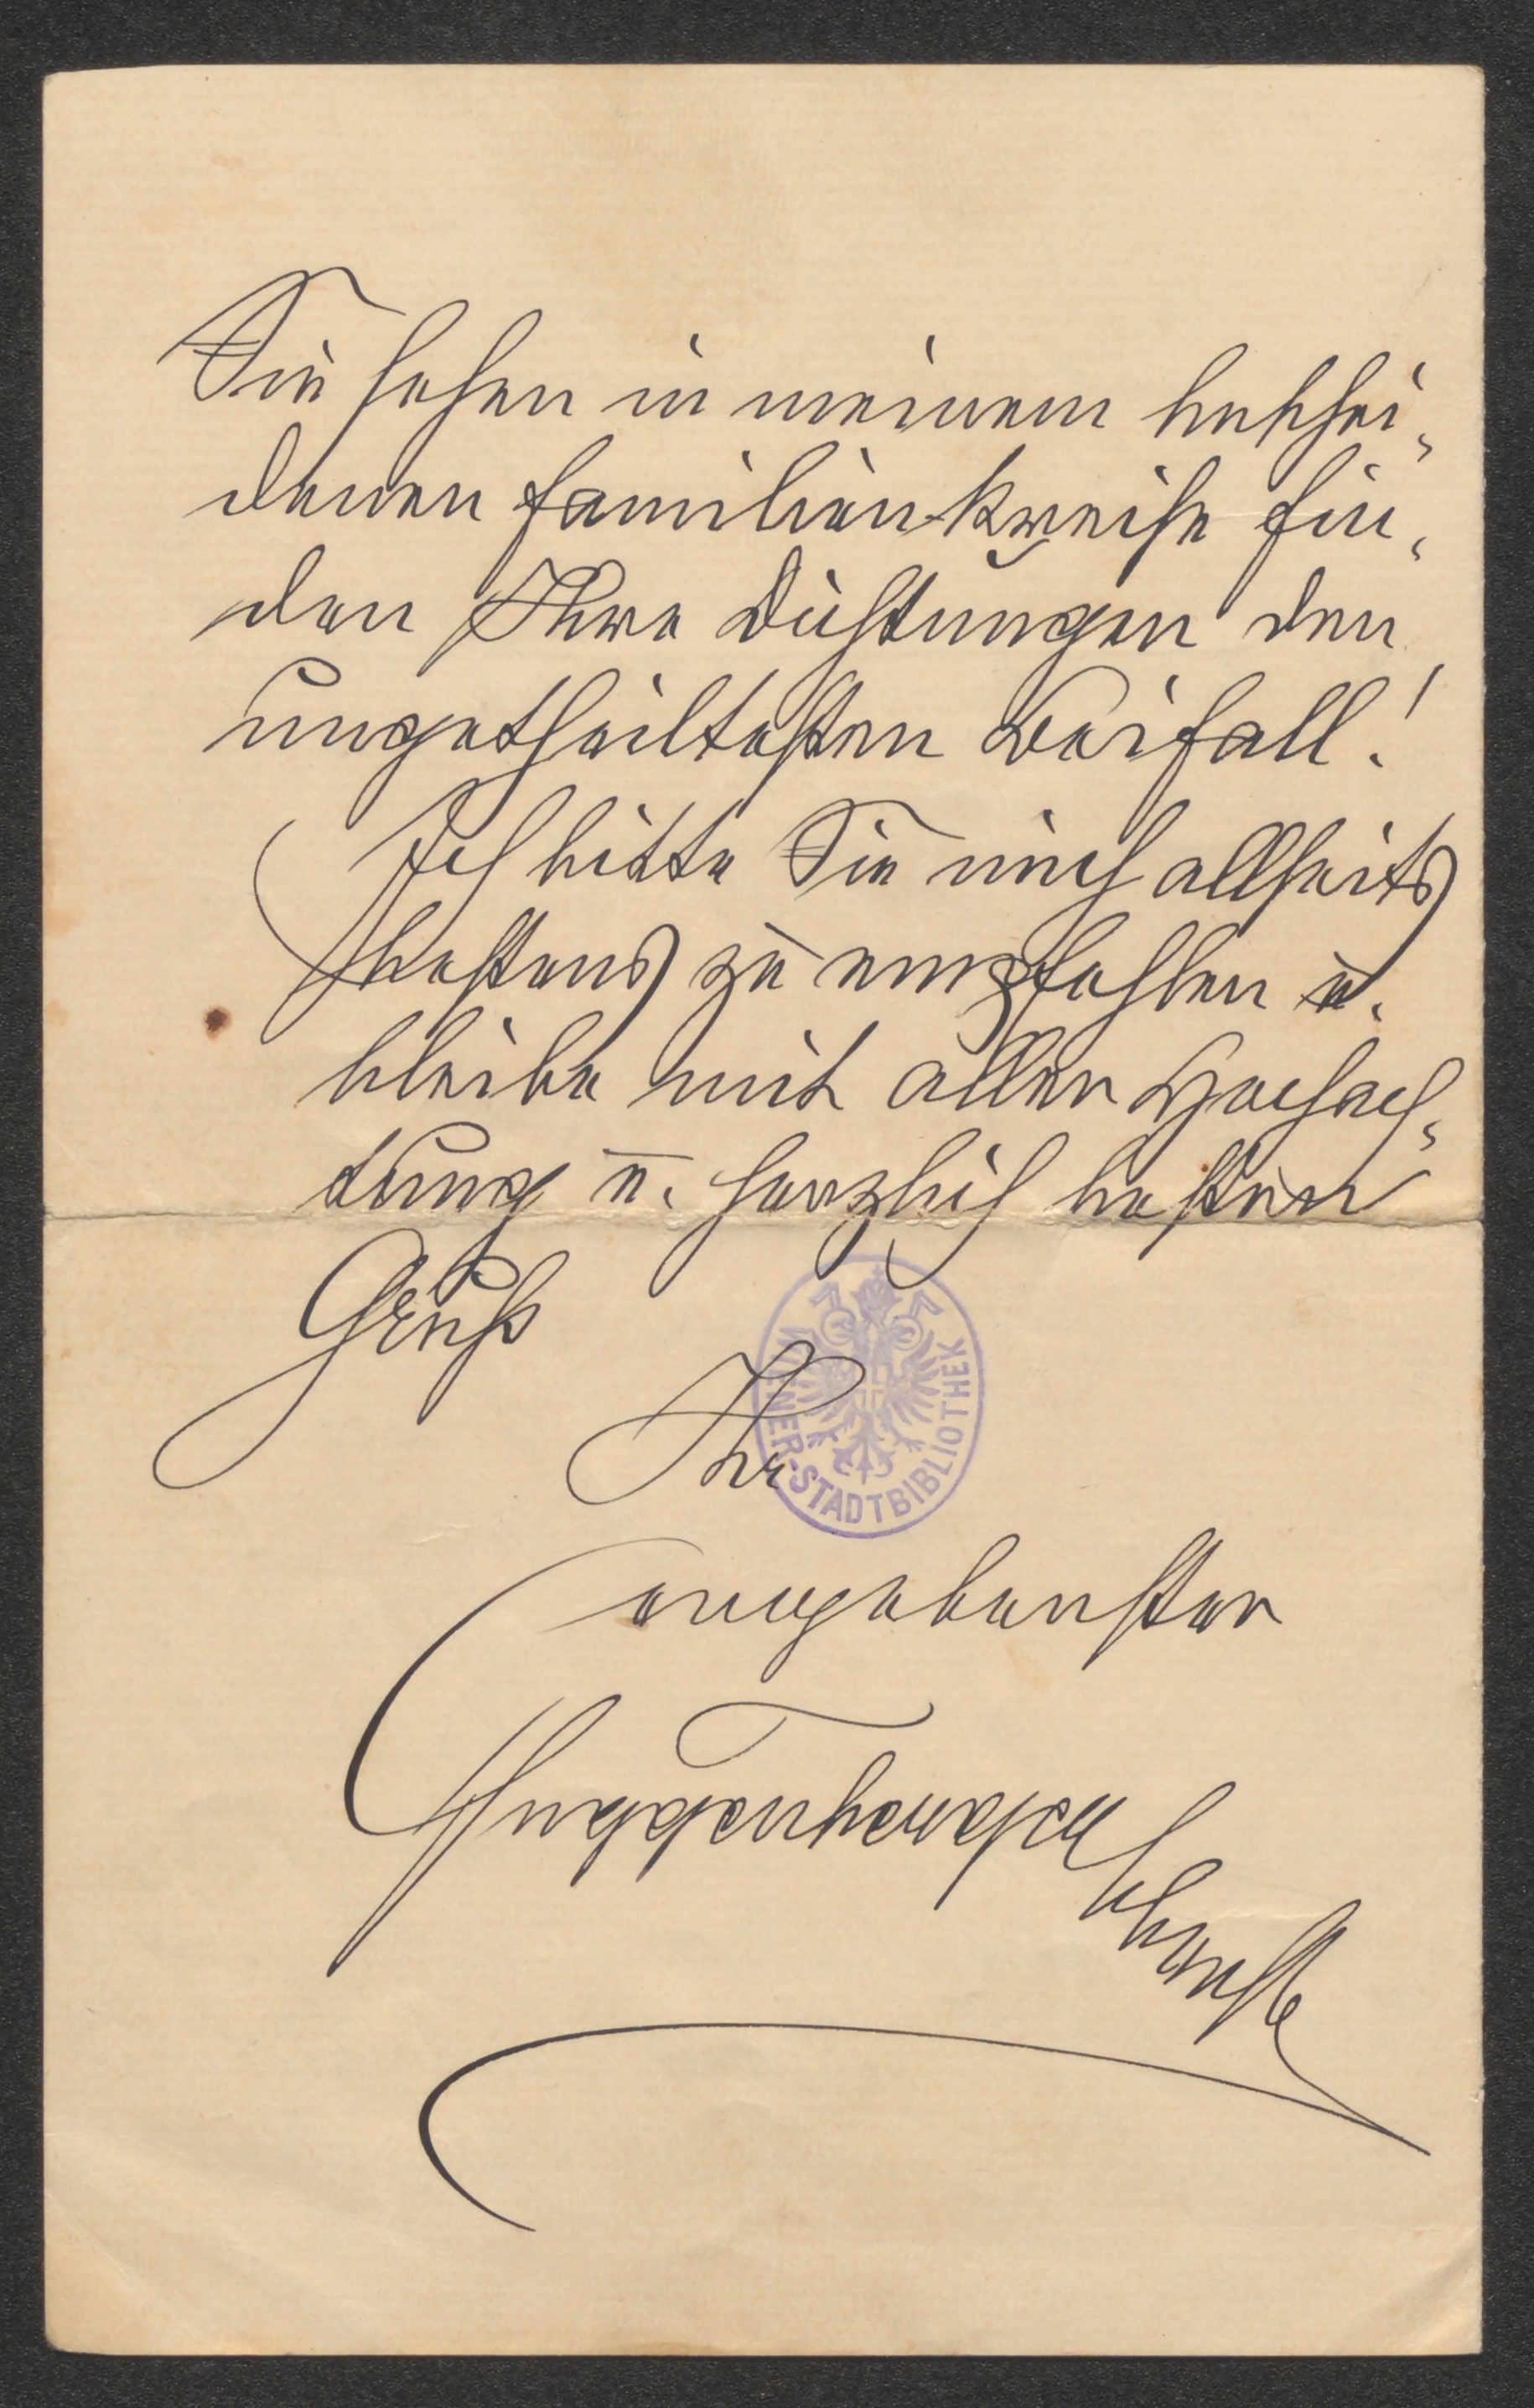 Sie sehen in meinem beschei-
denen Familien-Kreise fin-
den Ihre Dichtungen den
ungetheiltesten Beifall!
Ich bitte Sie mich allseits
bestens zu empfehlen u.
bleibe mit aller Hochach-
tung u. herzlich besten
Gruß
Ihr
WIENER-STADTBIBLIOTHEK
ergebenster